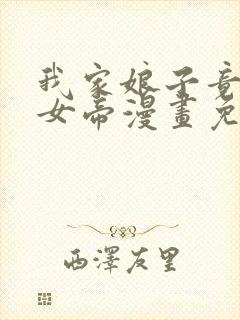 我家娘子竟
女帝漫畫免
西澤友里